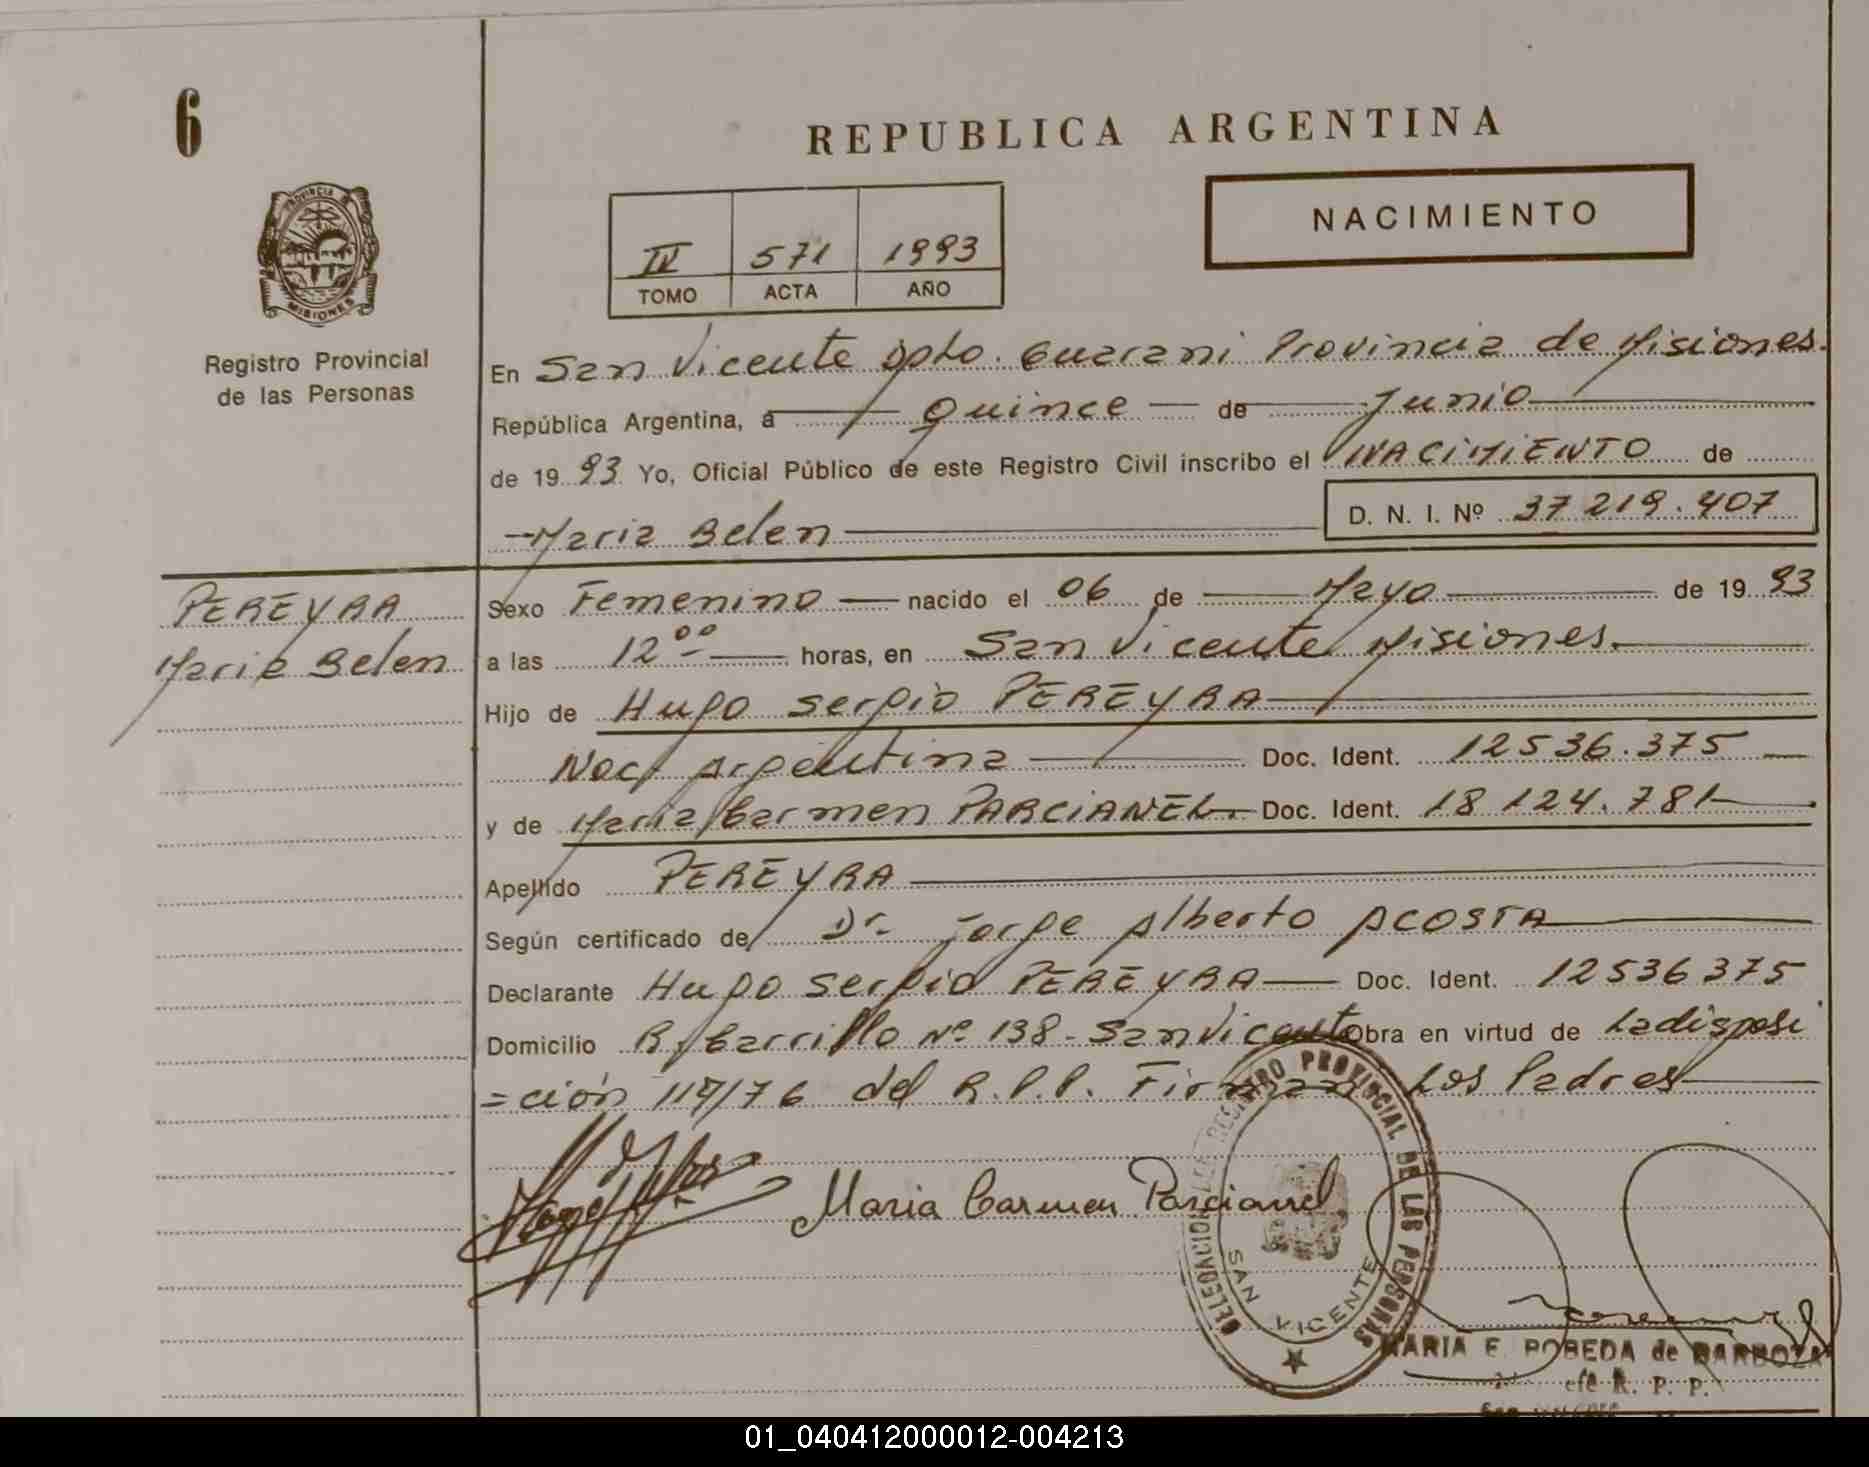 6
REPUBLICA ARGENTINA
NACIMIENTO
IV 571 1993
TOMO ACTA AÑO
PROVINCIA DE
MISIONES
Registro Provincial
de las Personas
En San Vicente Dpto. Guarani Provincia de Misiones.
República Argentina, a Quince de Junio
de 1993 Yo, Oficial Público de este Registro Civil inscribo el NACIMIENTO de
Maria Belen
D. N. I. Nº 37 219.407
PEREYRA
Maria Belen
Sexo Femenino nacido el 06 de Mayo de 1993
a las 12 00 horas, en San Vicente Misiones.
Hijo de Hugo Sergio PEREYRA
Nac. Argentina Doc. Ident. 12536.375
y de Maria Carmen PARCIANEL Doc. Ident. 18 124.781
Apellido PEREYRA
Según certificado de Dr. Jorge Alberto ACOSTA
Declarante Hugo Sergio PEREYRA Doc. Ident. 12536375
Domicilio B. Barrillo Nº 138 - San Vicente Obra en virtud de La disposi
=ción 117/76 del R.P.P. Firman Los Padres
Maria Carmen Parcianel
DELEGACION DEL REGISTRO PROVINCIAL DE LAS PERSONAS
SAN VICENTE
MARIA E. POBEDA de BARBOZA
efe R. P. P.
01_040412000012-004213